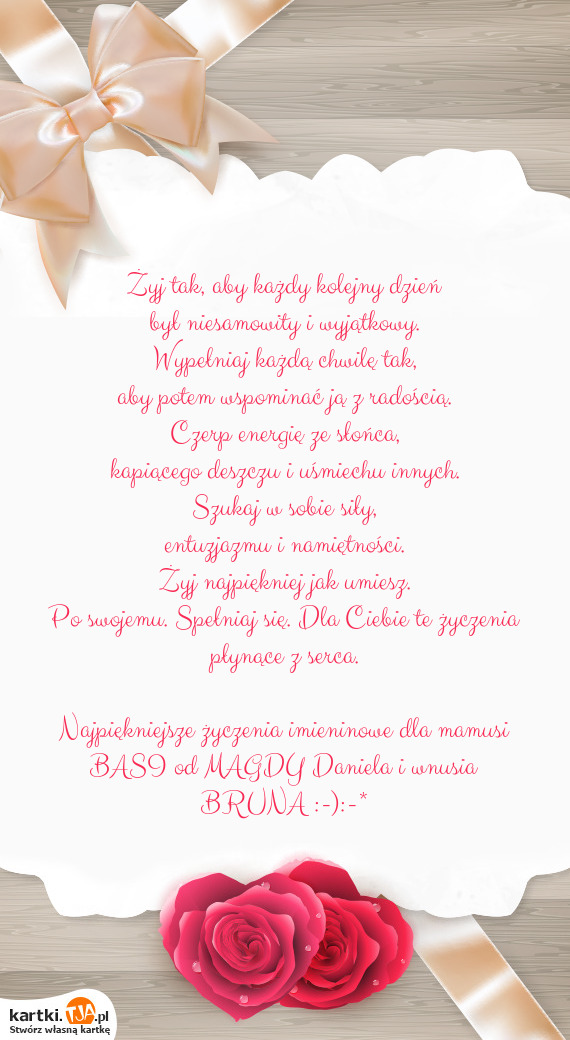 Żyj tak, aby każdy kolejny dzień
był niesamowity i wyjątkowy.
Wypełniaj każdą chwilę tak,
aby potem wspominać ją z radością.
Czerp energię ze słońca,
kapiącego deszczu i uśmiechu innych.
Szukaj w sobie siły,
entuzjazmu i namiętności.
Żyj najpiękniej jak umiesz.
Po swojemu. Spełniaj się. Dla Ciebie te życzenia
płynące z serca.
Najpiękniejsze życzenia imieninowe dla mamusi
BASI od MAGDY Daniela i wnusia
BRUNA :-):-*
kartki.TJA.pl
Stwórz własną kartkę